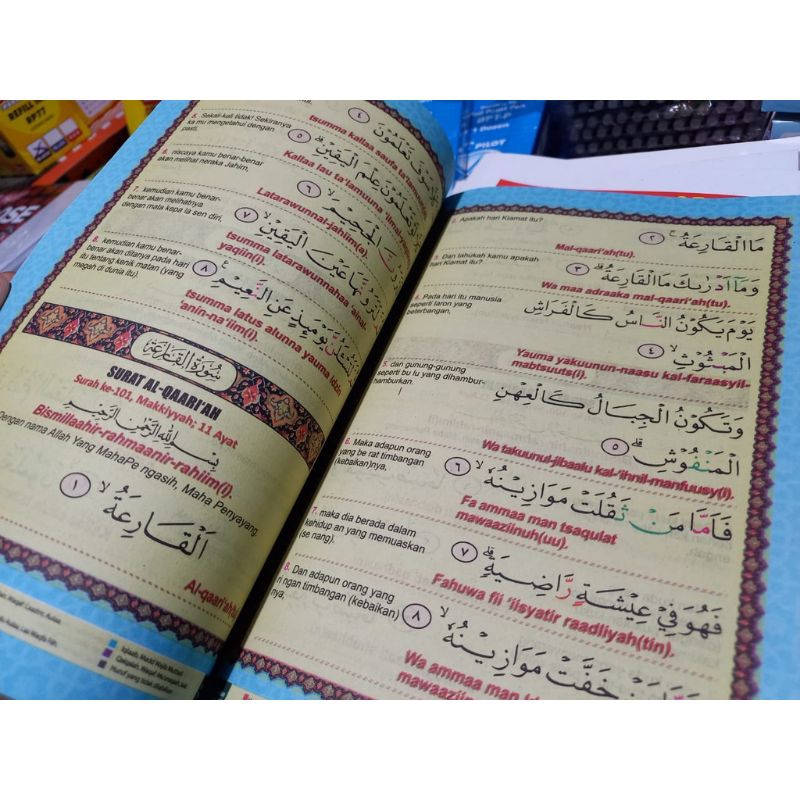 5. Sekali-kali tidak! Sekiranya
ka mu mengetahui dengan
pasti,
tsumma kallaa saufa ta'lamuun
٤
٥
Kallaa lau ta'lamuuna 'ilmal-yaqiin
6. niscaya kamu benar-benar
akan melihat neraka Jahim,
٦
Latarawunnal-jahiim(a).
7. kemudian kamu benar-
benar akan melihatnya
dengan mata kepa la sen diri,
٧
tsumma latarawunnahaa 'ainal-
yaqiin(i)
8. kemudian kamu benar-
benar akan ditanya pada hari
itu tentang kenik matan (yang
megah di dunia itu).
٨
tsumma latus alunna yauma idzin
'anin-na'iim(i).
سُورَةُ الْقَارِعَةِ
SURAT AL-QAARI'AH
Surah ke-101, Makkiyyah: 11 Ayat
بِسْمِ اللّٰهِ الرَّحْمٰنِ الرَّحِيْمِ
Bismillaahir-rahmaanir-rahiim(i).
Dengan nama Allah Yang MahaPe ngasih, Maha Penyayang.
اَلْقَارِعَةُ ۙ ١
Al-qaari'ah(tu)
2. Apakah hari Kiamat itu?
مَا الْقَارِعَةُ ۚ ٢
Mal-qaari'ah(tu).
3. Dan tahukah kamu apakah
hari Kiamat itu?
وَمَآ اَدْرٰىكَ مَا الْقَارِعَةُ ۗ ٣
Wa maa adraaka mal-qaari'ah(tu).
4. Pada hari itu manusia
seperti laron yang
beterbangan,
يَوْمَ يَكُوْنُ النَّاسُ كَالْفَرَاشِ
الْمَبْثُوْثِ ۙ ٤
Yauma yakuunun-naasu kal-faraasyil-
mabtsuuts(i).
5. dan gunung-gunung
seperti bu lu yang dihambur-
hamburkan.
وَتَكُوْنُ الْجِبَالُ كَالْعِهْنِ
الْمَنْفُوْشِ ۗ ٥
Wa takuunul-jibaalu kal-'ihnil-manfuusy(i).
6. Maka adapun orang
yang be rat timbangan
(kebaikan)nya,
فَاَمَّا مَنْ ثَقُلَتْ مَوَازِيْنُهٗ ۙ ٦
Fa ammaa man tsaqulat
mawaaziinuh(uu).
7. maka dia berada dalam
kehidup an yang memuaskan
(se nang).
فَهُوَ فِيْ عِيْشَةٍ رَّاضِيَةٍ ۗ ٧
Fahuwa fii 'iisyatir raadliyah(tin).
8. Dan adapun orang yang
ri ngan timbangan (kebaikan)
nya,
خَفَّتْ مَوَازِيْنُهٗ ۙ ٨
Wa ammaa man
mawaaziin
PILOT